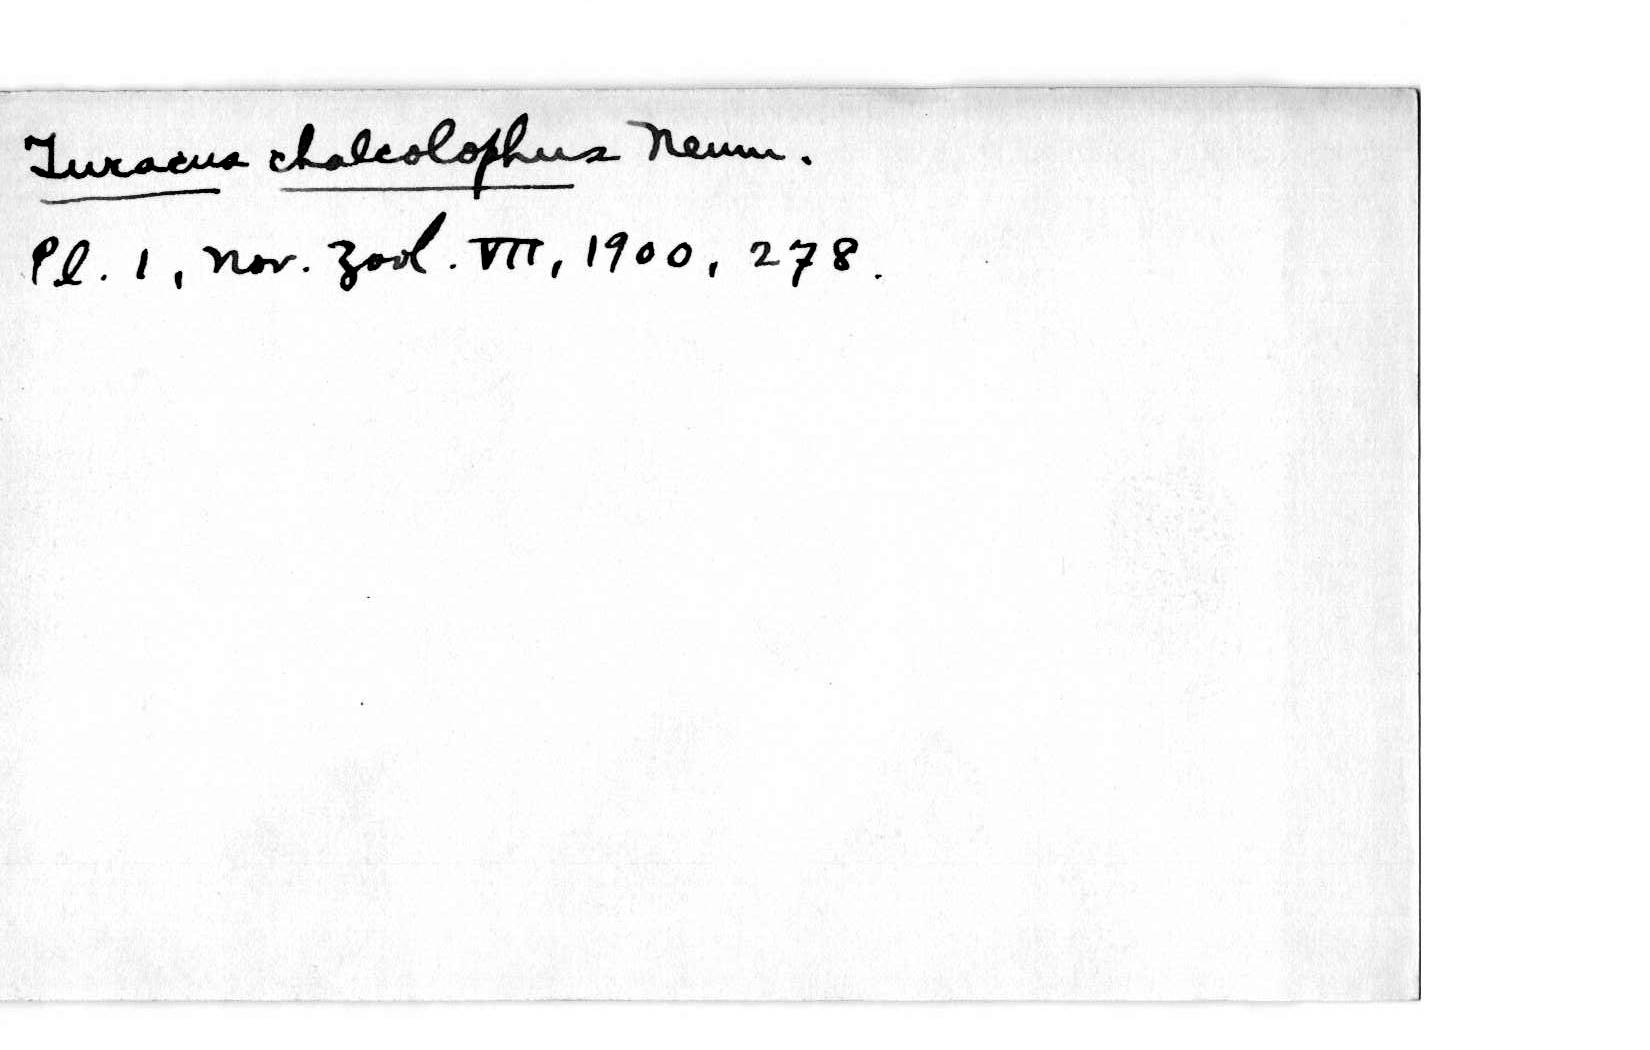 Turacus chalcolophus Neum.
Pl. 1, Nov. Zool. VII, 1900, 278.